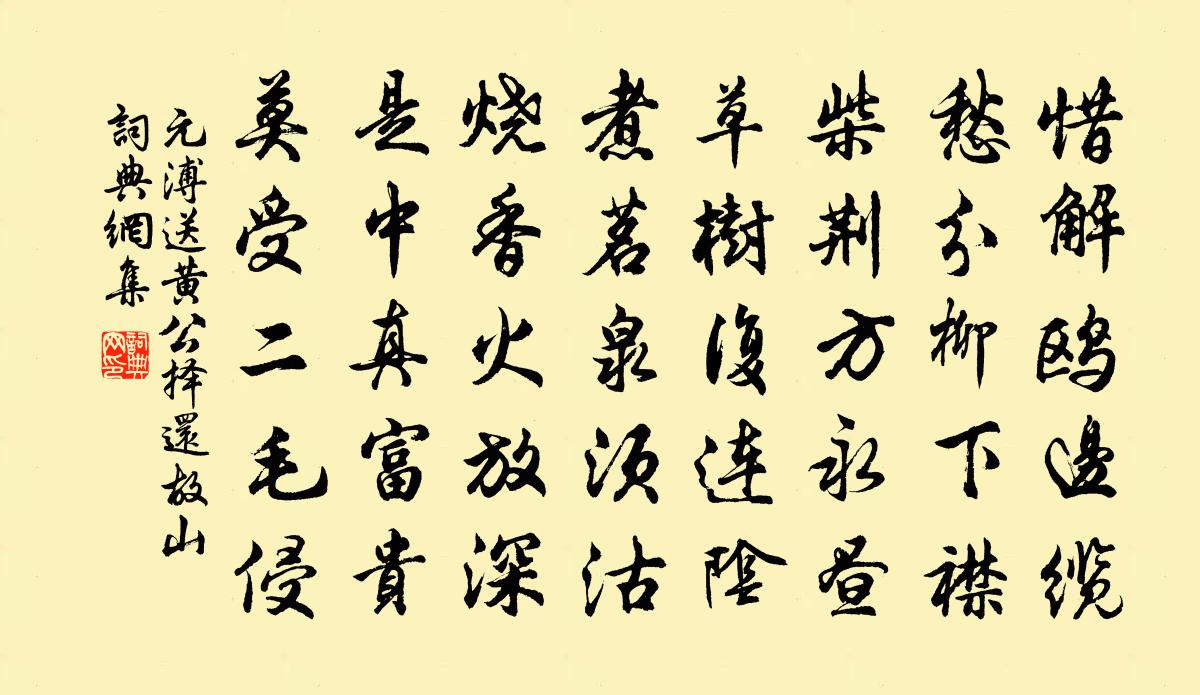 惜解鸥邊缆
愁分柳下襟
柴荆方永昼
草樹復連陰
煮茗泉须沽
烧香火放深
是中真富貴
莫受二毛侵
元溥送黄公择還故山
詞典網集
詞典網印